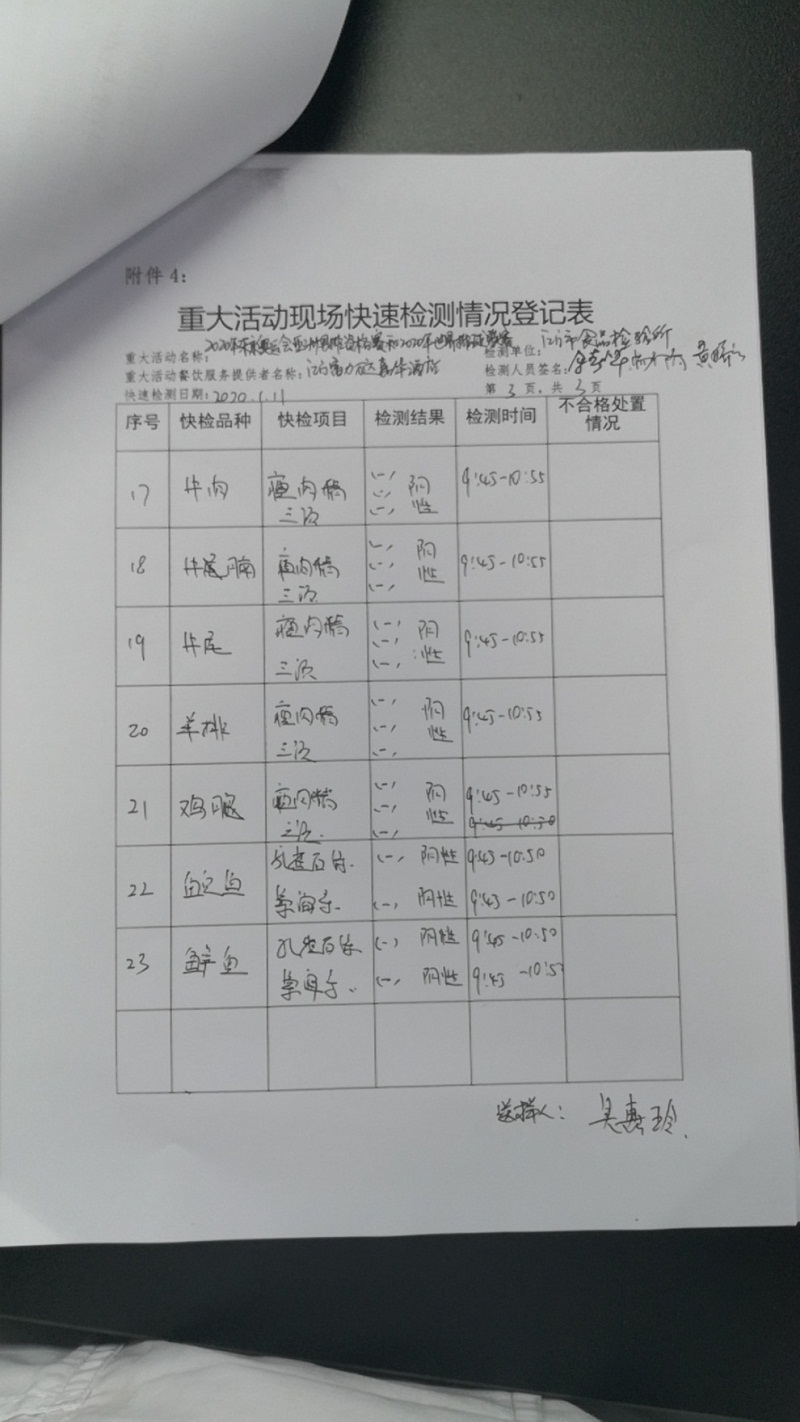 附件4:
重大活动现场快速检测情况登记表
重大活动名称: 2020年东京奥运会亚洲
检测单位: 江门市食品检验所
重大活动餐饮服务提供者名称: 江门富力万达嘉华酒店
检测人员签名:
快速检测日期: 2020.1.11
第 3 页，共 3 页
序号 快检品种 快检项目 检测结果 检测时间 不合格处置情况
17 牛肉 瘦肉精三项 (-) (-) (-) 阴性 9:45-10:55
18 牛尾腩 瘦肉精三项 (-) (-) (-) 阴性 9:45-10:55
19 牛尾 瘦肉精三项 (-) (-) (-) 阴性 9:45-10:55
20 羊排 瘦肉精三项 (-) (-) (-) 阴性 9:45-10:55
21 鸡腿 瘦肉精三项 (-) (-) (-) 阴性 9:45-10:55
22 鱼 孔雀石绿 (-) 阴性 9:45-10:50
(-) 阴性 9:43-10:50
23 鱼 孔雀石绿 (-) 阴性 9:45-10:50
(-) 阴性 9:43
送样人: 吴惠玲